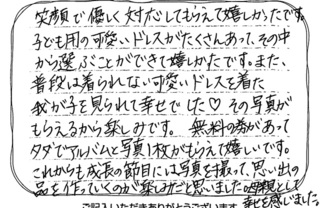 笑顔で優しく対応してもらえて嬉しかったです。
子ども用の可愛いドレスがたくさんあって、その中
から選ぶことができて嬉しかたです。また、
普段は着られない可愛いドレスを着た
我が子を見られて幸せでした♡ その写真が
もらえるから楽しみです。 無料の券があって
タダでアルバムと写真1枚がもらえて嬉しいです。
これからも成長の節目には写真を撮って、思い出の
品を作っていくのが楽しみだと思いました。母親として
幸せを感じました。
ご記入いただきありがとうございます。